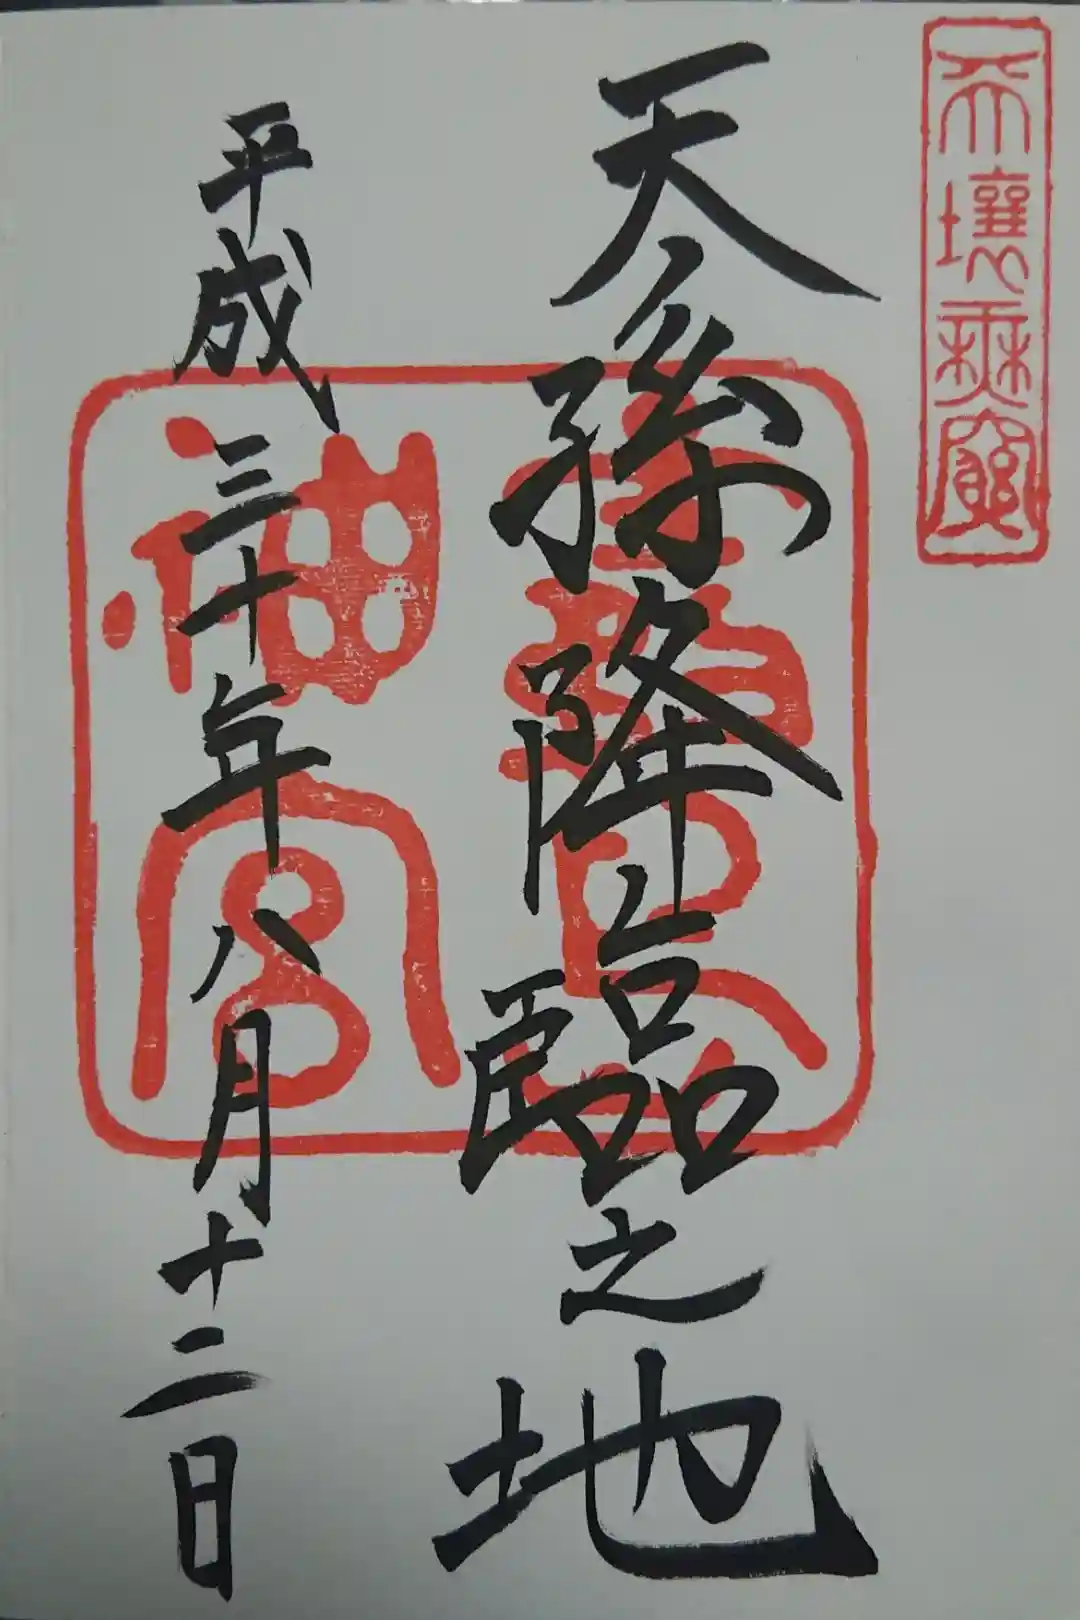 天壌無窮
天孫降臨之地
霧島神宮
平成三十年八月十二日